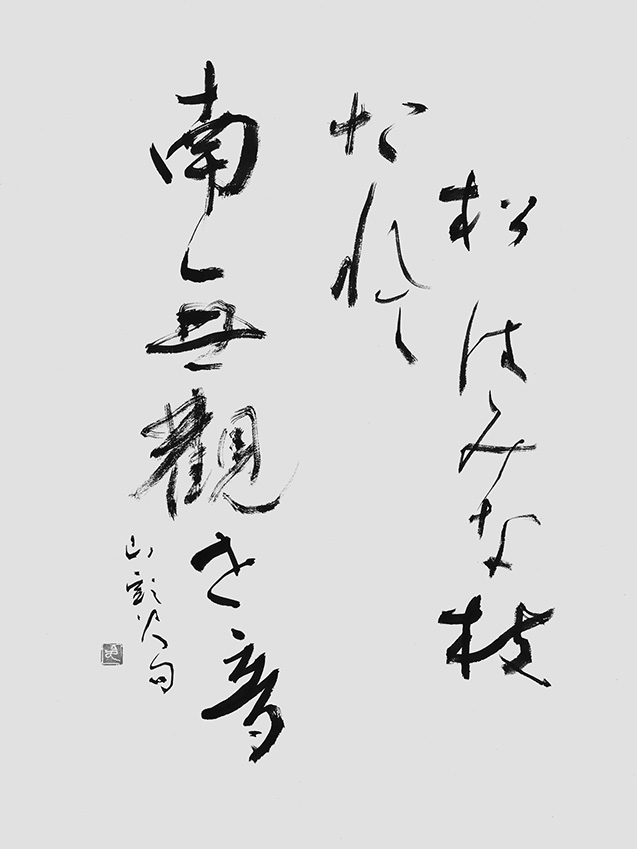 松はみな枝
たれて
南無觀世音
山頭火句